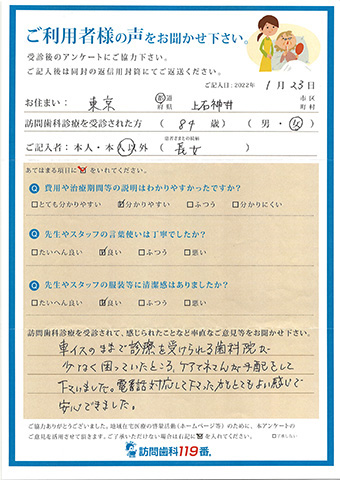 ご利用者様の声をお聞かせ下さい。
受診後のアンケートにご協力下さい。
ご記入後は同封の返信用封筒にてご返送ください。
ご記入日:2022年 1月23日
お住まい: 東京 都道府県 上石神井 市区町村
訪問歯科診療を受診された方 ( 84 歳) (男・女)
ご記入者:本人・本人以外 ( 患者さまとの続柄 長女 )
あてはまる項目に☑をいれてください。
Q 費用や治療期間等の説明はわかりやすかったですか?
□とても分かりやすい ☑分かりやすい □ふつう □分かりにくい
Q 先生やスタッフの言葉使いは丁寧でしたか?
□たいへん良い ☑良い □ふつう □悪い
Q 先生やスタッフの服装等に清潔感はありましたか?
□たいへん良い ☑良い □ふつう □悪い
訪問歯科診療を受診されて、感じられたことなど率直なご意見等をお聞かせ下さい。
車イスのままで診療を受けられる歯科院が
少なく困っていたところ、ケアマネさんが手配をして
下さいました。電話対応して下さった方もとてもよい感じで
安心できました。
ご協力ありがとうございました。地域在宅医療の啓発活動(ホームページ等)のために、本アンケートの
ご意見を活用させて頂きます。ご了承いただけない場合は右記に☑を入れてください。 □了承しない
訪問歯科119番。